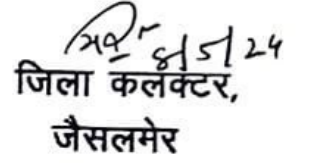 8/5/24
जिला कलक्टर,
जैसलमेर